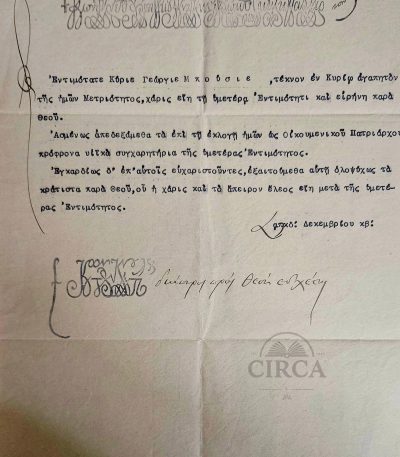 Ἐντιμότατε Κύριε Γεώργιε Μπούσιε ,τέκνον ἐν Κυρίῳ ἀγαπητὸν
τῆς ἡμῶν Μετριότητος,χάρις εἴη τῇ ὑμετέρᾳ Ἐντιμότητι καὶ εἰρήνη παρὰ
Θεοῦ.
Ἀσμένως ἀπεδεξάμεθα τὰ ἐπὶ τῇ ἐκλογῇ ἡμῶν ὡς Οἰκουμενικοῦ Πατριάρχου
πρόφρονα υἱϊκὰ συγχαρητήρια τῆς ὑμετέρας Ἐντιμότητος.
Ἐγκαρδίως δ' ἐπ'αὐτοῖς εὐχαριστοῦντες,ἐξαιτούμεθα αὐτῇ ὁλοψύχως τὰ
κράτιστα παρὰ Θεοῦ,οὗ ἡ χάρις καὶ τὸ ἄπειρον ἔλεος εἴη μετὰ τῆς ὑμετέ-
ρας Ἐντιμότητος.
Δεκεμβρίου κβ:
διάπυρος πρὸς Θεὸν εὐχέτης
CIRCA